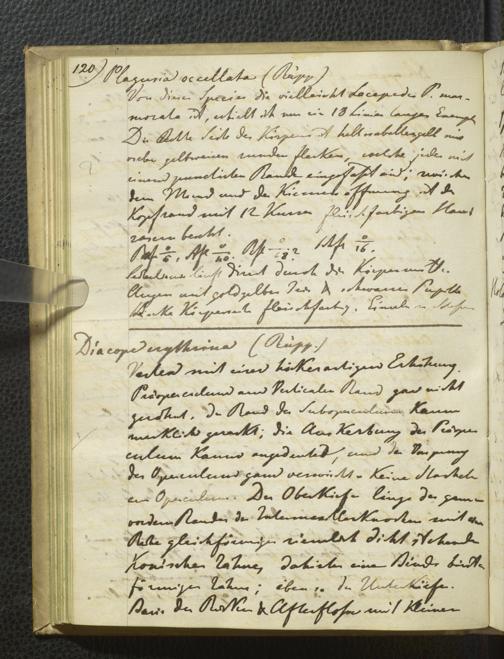 120) Plagusia occellata (Rüpp)
Von dieser Species die vielleicht Lacepedes P. mar-
morata ist, erhielt ich nur ein 13 Linien langes Exempl
Die Seite des Körpers ist hellisabellgelb mit
gelbweisen runden flecken, welche jeder mit
einem Rande eingefasst sind; zwischen
dem Mund und der Kiemenöffnung ist der
Kopfrand mit 12 Kurzen fleischfarbigen Haut
besezt.
direct durch die Körpermitte.
Augen mit goldgelber Iris & schwarzer Pupille
Körperseite fleischfarbig.
Diacope erythrina (Rüpp.)
mit einer höckerartigen Erhöhung.
Präoperculum am Verticalen Rand gar nicht
gezähnt, der Rand des Suboperculum Kaum
merklich gezackt; die Auskerbung des Präoper
culum Kaum angedeutet, und der Vorsprung
des Operculum ganz verwischt. Keine Stacheln
am Operculum. Der Oberkiefer längs des ganzen
vordern Randes der Intermaxillarknochen mit einer
Reihe gleichförmiger ziemlich dicht stehender
Konischer Zähne, dahinter eine Binde bürsten
förmiger Zähne; eben so der Unterkiefer.
Basis der Rücken & Afterflosse mit Kleinen